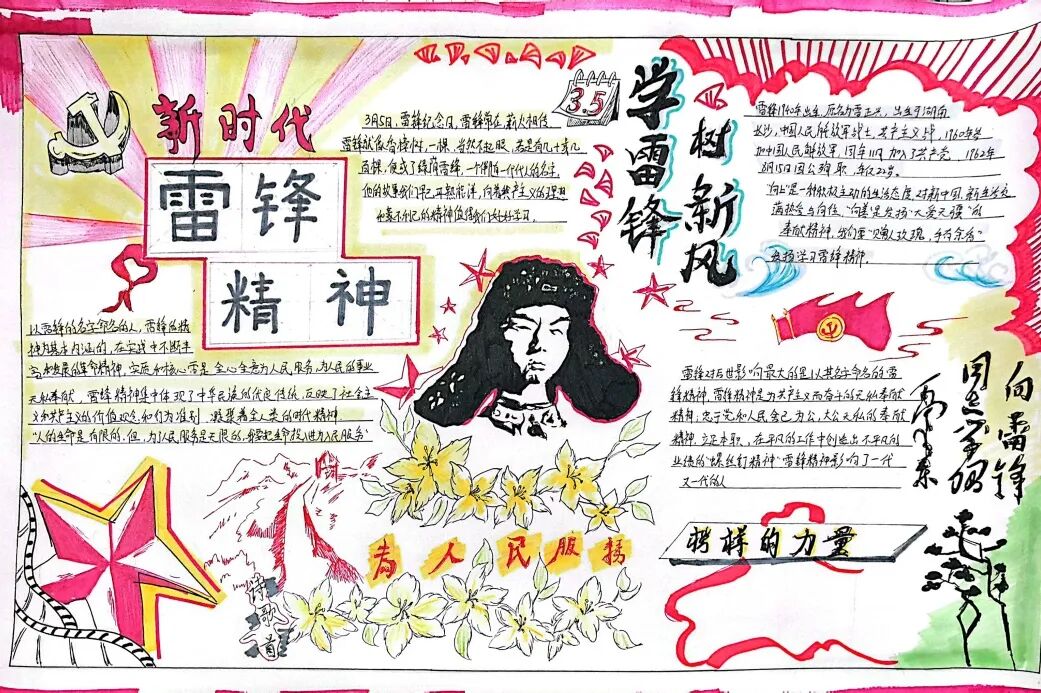 新时代
雷锋
精神
3.5
学雷锋
树新风
3月5日,雷锋纪念日,雷锋常在,薪火相传
雷锋就像春樟树,一棵,当然不起眼,若是有几十或几
百棵,便成了绿荫
他的故事我们早已耳熟能详,向着共产主义的理想
的精神值得我们好好学习。
雷锋1940年出生,原名雷正兴,出生于湖南
长沙,中国人民解放军战士,共产主义战士,1960年参
加中国人民解放军,同年11月加入了共产党。1962年
8月15日因公殉职,年仅22岁。
"向上"是一种积极主动的生活态度,对新中国,新生活充
满热爱与向往,"向善"是发扬"大爱无疆"的
奉献精神,"赠人玫瑰,手有余香"
学习雷锋精神。
以雷锋的名字命名的,雷锋的精
神为基本内涵的,在实践中不断丰
富和发展的革命精神,实质和核心是全心全意为人民服务,为人民的事业
无私奉献。雷锋精神集中体现了中华民族的优良传统,反映了社会主
义和共产主义的价值观念和行为准则,凝聚着全人类的时代精神
"人的生命是有限的,但,为人民服务是无限的,我要把生命投进为人民服务"
雷锋对后世影响最大的是以其名字命名的雷
锋精神,雷锋精神是为共产主义而奋斗的无私奉献
精神,忠于党和人民舍己为公,大公无私的奉献
精神,立足本职,在平凡的工作中创造出不平凡的
业绩的"螺丝钉精神"雷锋精神影响了一代
又一代的人
向雷锋
同志学习
毛泽东
为人民服务
榜样的力量
诗歌一首